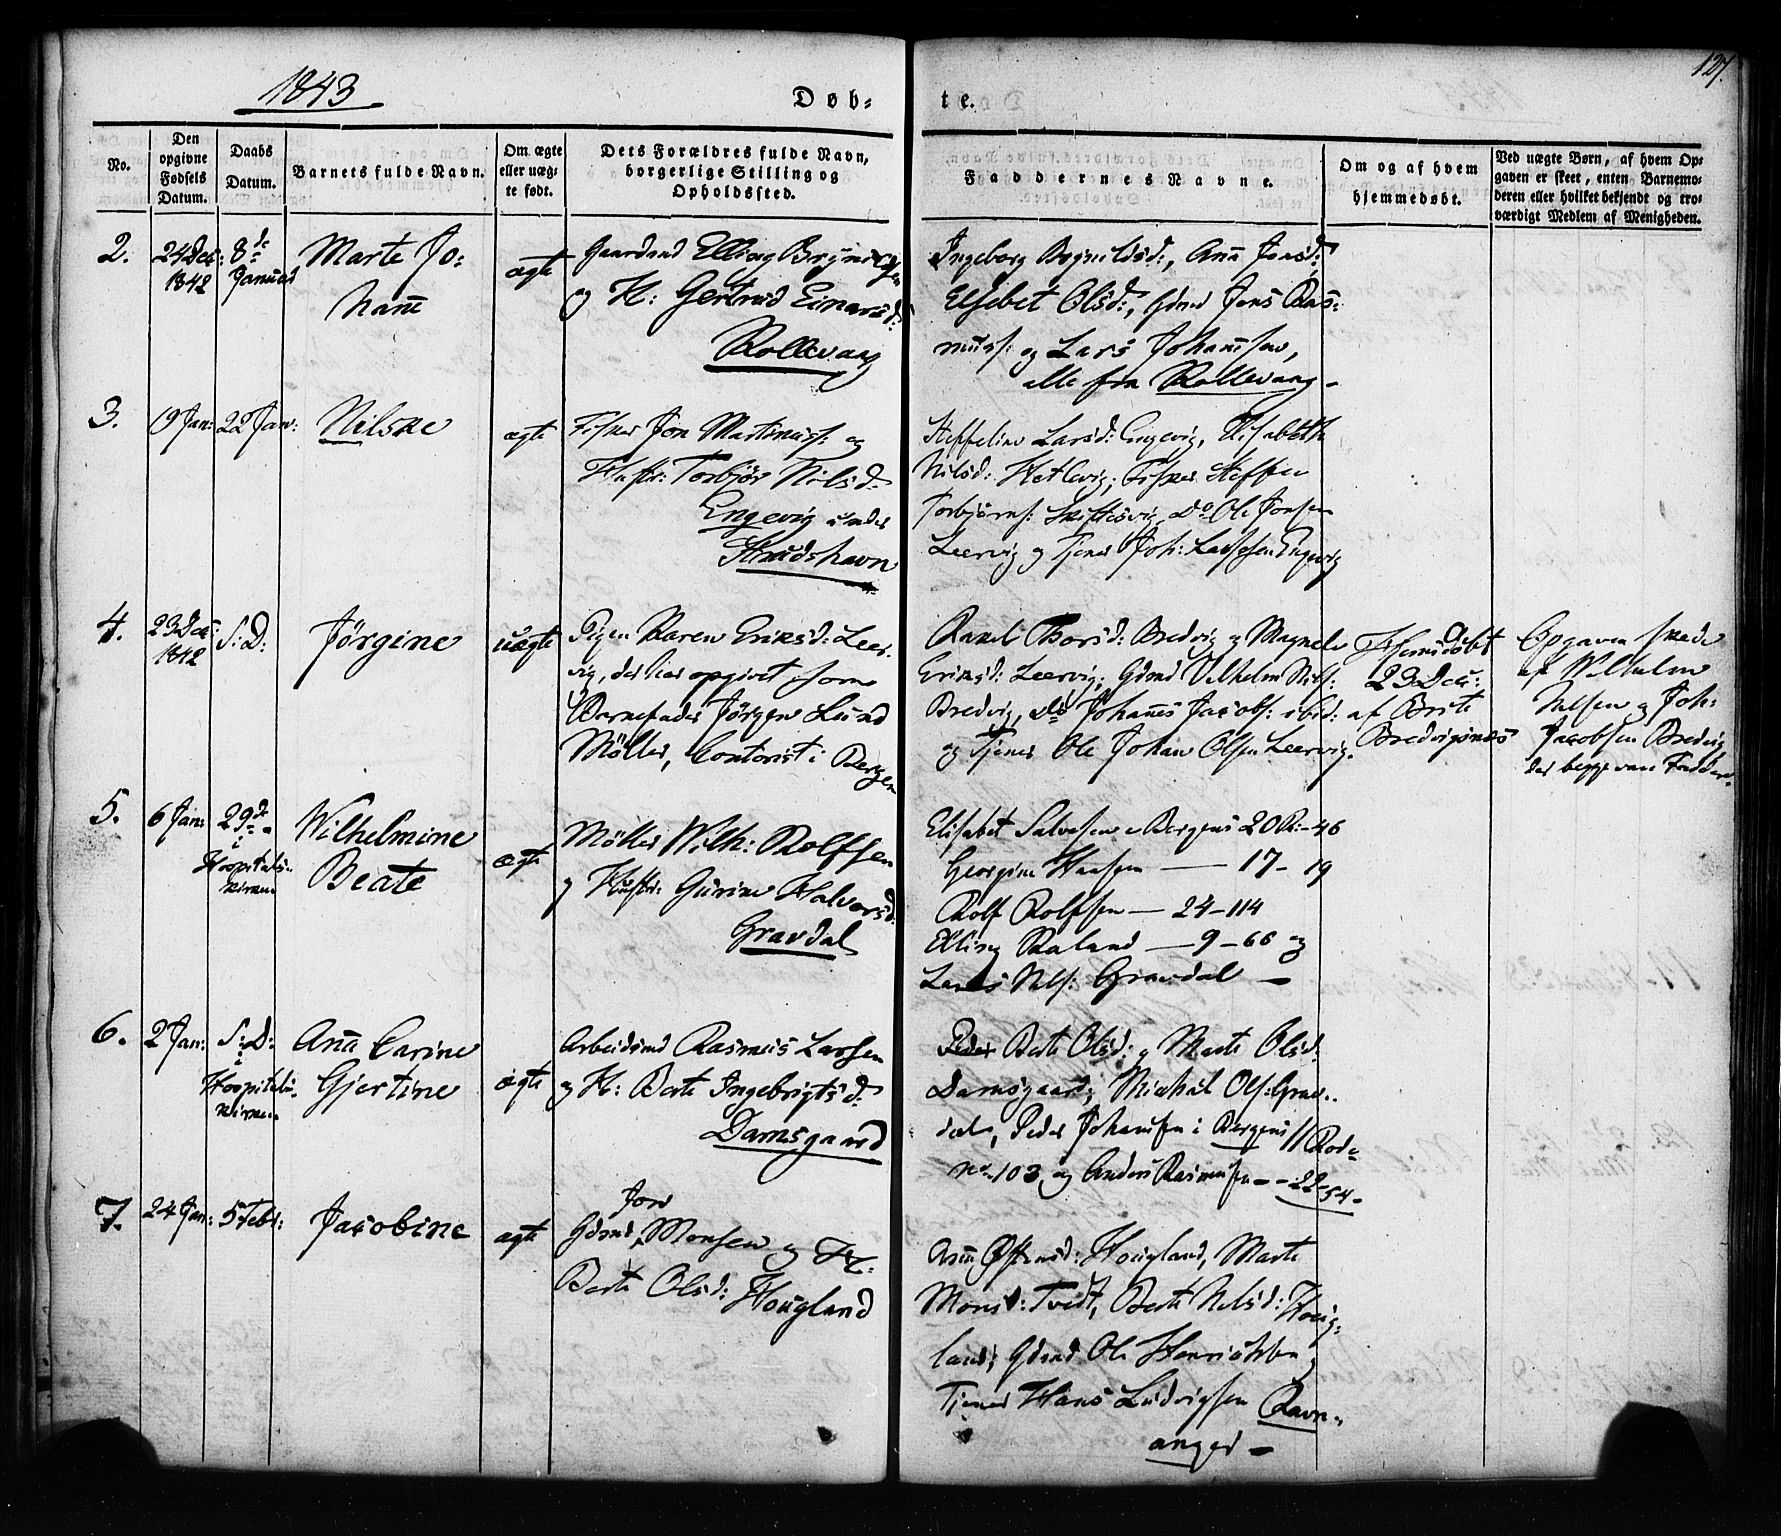 1843
Døb-
te.
127.
No.
Den
opgivne
Fødsels
Datum.
Daabs
Datum.
Barnets fulde Navn.
Om ægte
eller uæg-
te født.
Dets Forældres fulde Navn,
borgerlige Stilling og
Opholdssted.
Faddernes Navne.
Om og af hvem
hjemmedøbt.
Ved uægte Børn, af hvem Op-
gaven er skeet, enten Barnemo-
deren eller hvilket bekjendt og tro-
værdigt Medlem af Menigheden.
2.
24 Dec:
1842
8de
Januar
Marte Jo-
hanne
ægte
Gaardmd Elling Brynigs:
og H: Gertrud Einarsd:
Rollevaag
Ingeborg Bognildsd:, Anna Jonsd:
Elsebet Olsd:, Gdmd Jens Ras-
muss: og Lars Johannesen,
alle fra Rollevaag -
3.
19 Jan:
22 Jan:
Nilske
ægte
Fisker Jon Martinus: og
Hustr: Torbjør Nilsd:
Engevig under
Strudshavn
Steffeline Larsd: Engevig, Elisabeth
Nilsd: Hetlevig; Fisker Steffen
Torbjørns: Skiftesvig, Do Ole Jonsen
Leervig og Tjener Joh: Larssen Engevig
4.
23 Dec:
1842
S: D:
Jørgine
uægte
Pigen Karen Eriksd: Leer-
vig, der har opgivet som
Barnefader Jørgen Lund
Möller, Contorist i Bergen
Rakel Thorsd: Bredvig og Magnele
Eriksd: Leervig; Gdmd Vilhelm Nils:
Bredvig, Do Johannes Jacobs: ibid:
og Tjener Ole Johan Olsen Leervig.
Hjemmedøbt
23 Dec:
af Brite
Bredvigsnæs
Opgaven skede
af Wilhelm
Nilsen og Joh:
Jacobsen Bredvig
der begge vare Faddere
5.
6 Jan:
29de
i
Hospitals-
kirken
Wilhelmine
Beate
ægte
Möller Wilh: Rolfsen
og Hustr: Gurine Halvorsd:
Gravdal
Elisabet Salvesen Bergens 20 R: - 46
Georgine Hansen - 17 - 19
Rolf Rolfsen - 24 - 114
Elling Raland - 9 - 66 og
Lars Nils: Gravdal -
6.
2 Jan:
S: D:
i
Hospitals-
kirken
Anna Carine
Gjertine
ægte
Arbeidsmd Rasmus Larsen
og H: Berte Ingebrigtsd:
Damsgaard
Berte Olsd: og Marte Olsd:
Damsgaard; Mickal Ols: Grav-
dal, Peder Johansen i Bergens 11 Rode
No 103, og Anders Rasmussen - - 22 - 54 -
7.
24 Jan:
5 Febr:
Jacobine
ægte
Jon
Gdmd Monsen og H:
Berte Olsd: Hougland
Anna Østensd: Hougland, Marte
Monsd: Tvedt, Berte Nilsd: Houg-
land; Gdmd Ole Henriksen og
Tjener Hans Ludvigsen Ravn-
anger -